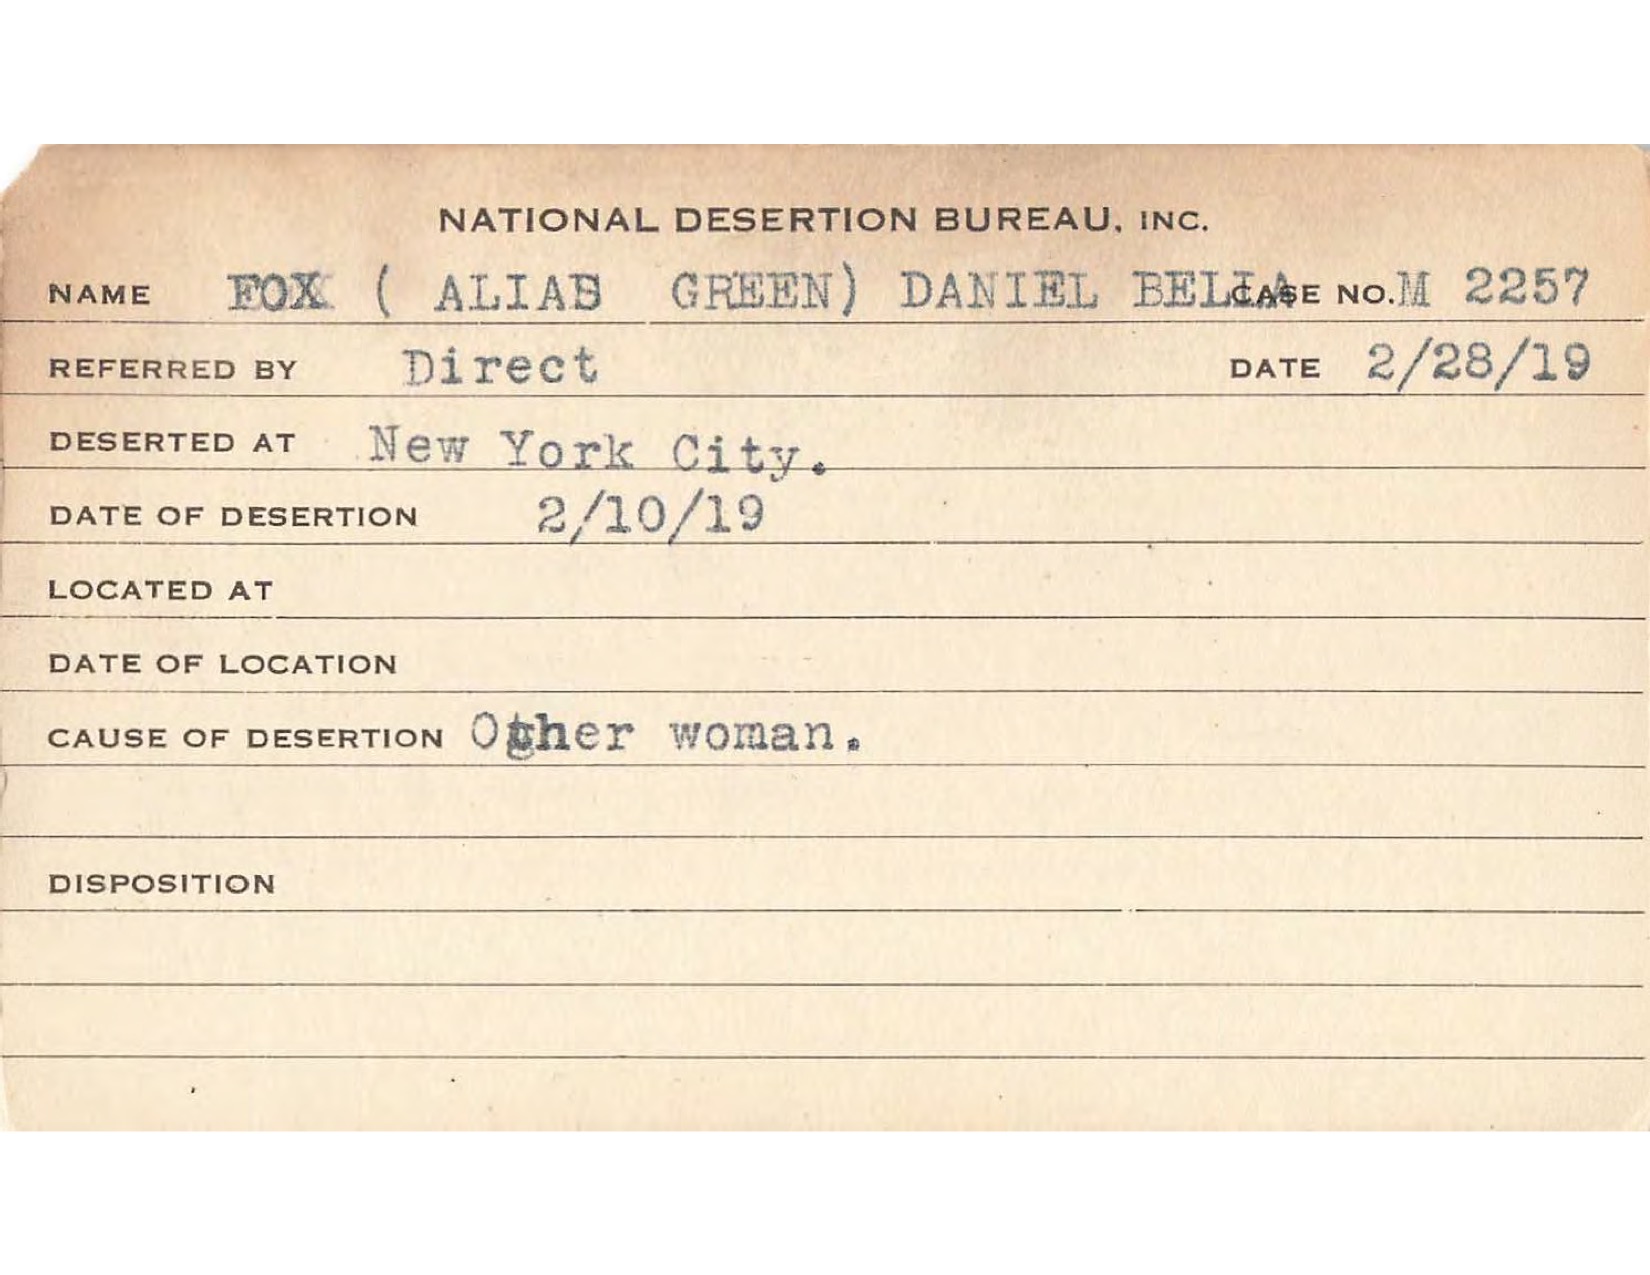 NATIONAL DESERTION BUREAU, INC.
NAME FOX ( ALIAS GREEN) DANIEL BELLA CASE NO. M 2257
REFERRED BY Direct DATE 2/28/19
DESERTED AT New York City.
DATE OF DESERTION 2/10/19
LOCATED AT
DATE OF LOCATION
CAUSE OF DESERTION Other woman.
DISPOSITION